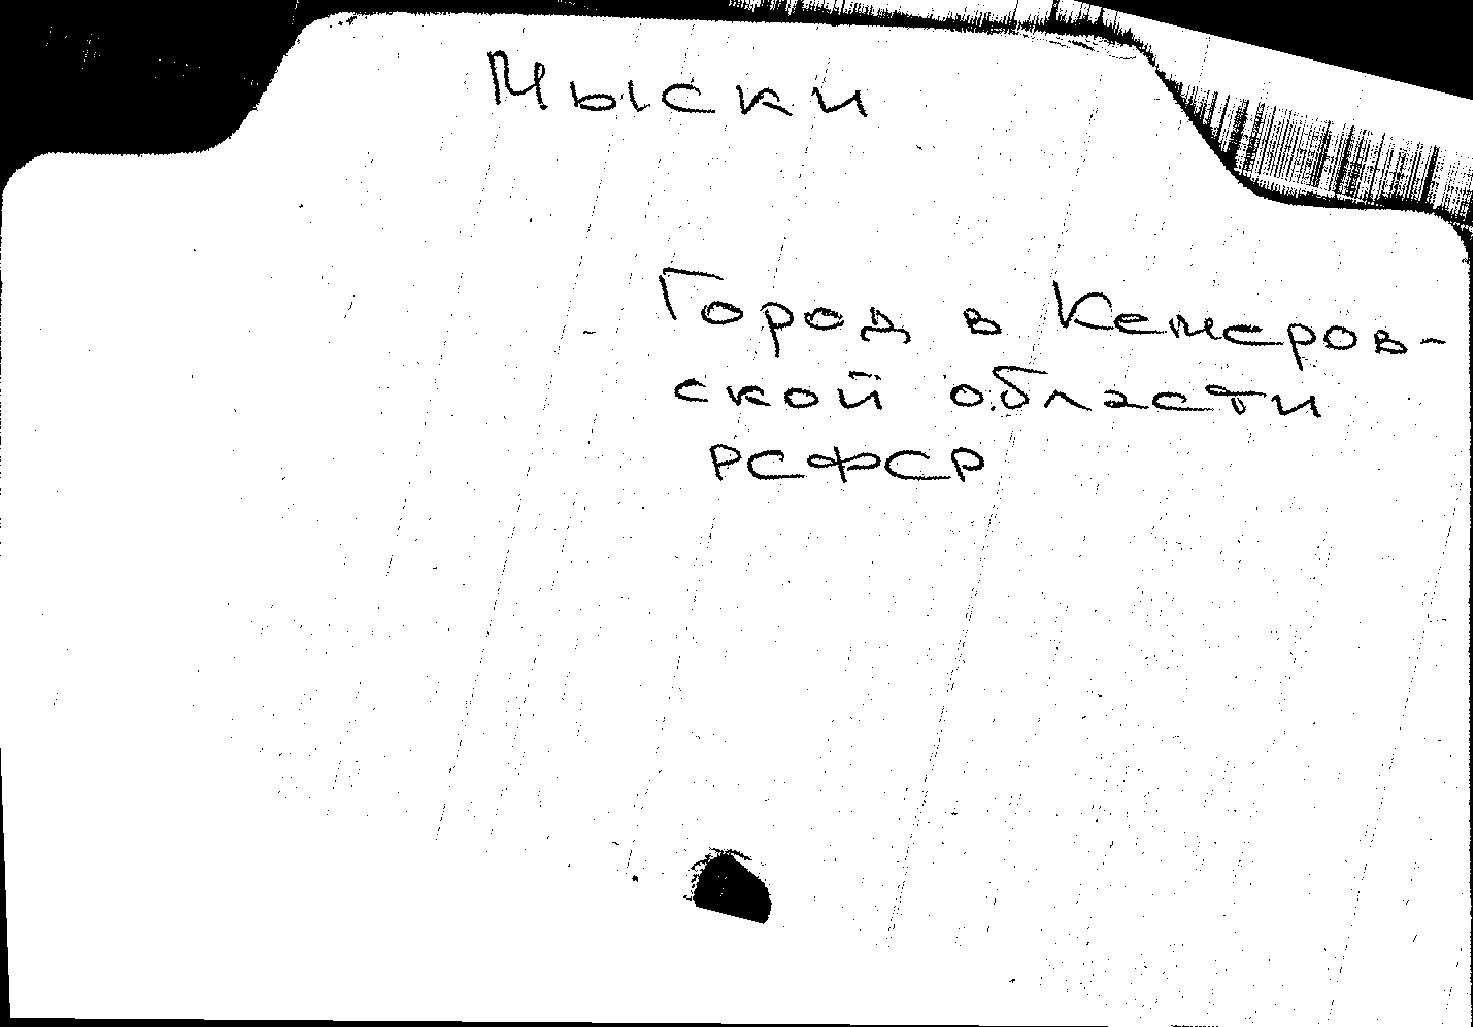 Мыски
Город в Кемеров-
ской области
РСФСР